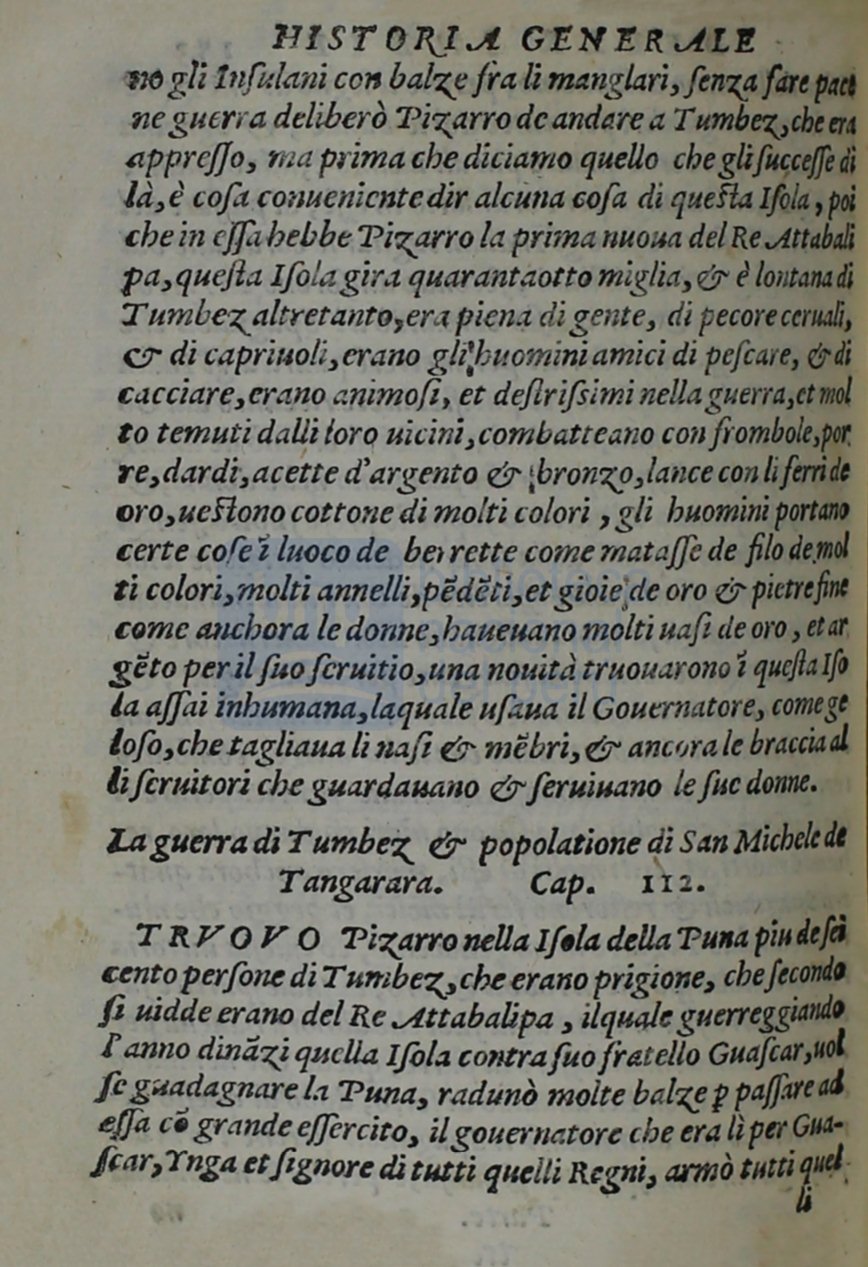 HISTORIA GENERALE
no gli Insulani con balze fra li manglari, senza fare pace
ne guerra deliberò Pizarro de andare a Tumbez, che era
appresso, ma prima che diciamo quello che gli successe di
là, è cosa conueniente dir alcuna cosa di questa Isola, poi
che in essa hebbe Pizarro la prima nuoua del Re Attabali
pa, questa Isola gira quarantaotto miglia, & è lontana di
Tumbez altretanto, era piena di gente, di pecore ceruali,
& di capriuoli, erano gli huomini amici di pescare, & di
cacciare, erano animosi, et destrissimi nella guerra, et mol
to temuti dalli loro uicini, combatteano con frombole, por
re, dardi, acette d'argento & bronzo, lance con li ferri de
oro, uestono cottone di molti colori, gli huomini portano
certe cose ĩ luoco de berrette come matasse de filo de mol
ti colori, molti annelli, pẽdẽti, et gioie de oro & pietre fine
come anchora le donne, haueuano molti uasi de oro, et ar
gẽto per il suo seruitio, una nouità truouarono ĩ questa Iso
la assai inhumana, laquale usaua il Gouernatore, come ge
loso, che tagliaua li nasi & mẽbri, & ancora le braccia al
li seruitori che guardauano & seruiuano le sue donne.
La guerra di Tumbez & popolatione di San Michele de
Tangarara. Cap. 112.
TRVOVO Pizarro nella Isola della Puna piu de sei
cento persone di Tumbez, che erano prigione, che secondo
si uidde erano del Re Attabalipa, ilquale guerreggiando
l'anno dinãzi quella Isola contra suo fratello Guascar, uol
se guadagnare la Puna, radunò molte balze ꝑ passare ad
essa cõ grande essercito, il gouernatore che era lì per Gua-
scar, Ynga et signore di tutti quelli Regni, armò tutti quel
li